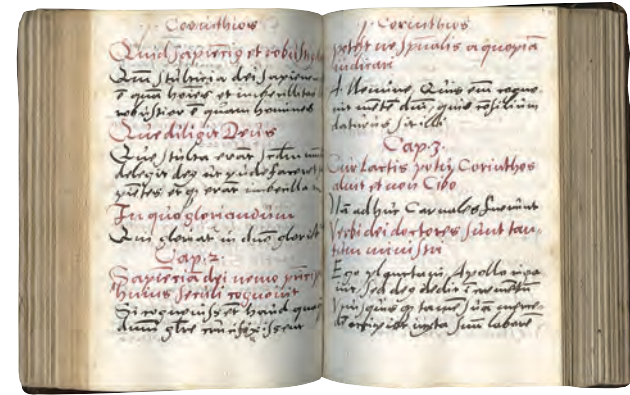 1. Corinthios
Quid sapientię et robustę
Qm̄ stulticia dei sapiens
ē quā hoīes et imbecillitas
robustior ē quam homines
Que diligit Deus
Que stulta erāt scdm̄
delegit deg ut pudefaceret
pietes et q erāt imbecilla
In quo gloriandum
Qui gloriat in dnō glori
Cap. 2.
Sapientiā dei nemo princip
huius seculi cognovit
Si cognovissēt haud
dnm̄ glīe crucifixissent
1. Corinthios
potest ne spūalis a quopiā
iudicari
A Nemine, Quis em̄ cogno
vit mētē dnī, quis cōsilium
daturus sit illi
Cap. 3.
Cur lactis potu Corinthos
aluit et non Cibo
Nā adhuc Carnales fuerunt
Verbi dei doctores sunt tan-
tum ministri
Ego plantavi, Apollo riga
vit, sed deg dedit icremētū
Unusquisq tamē suā merce-
dē accipiet iuxta suū laborē